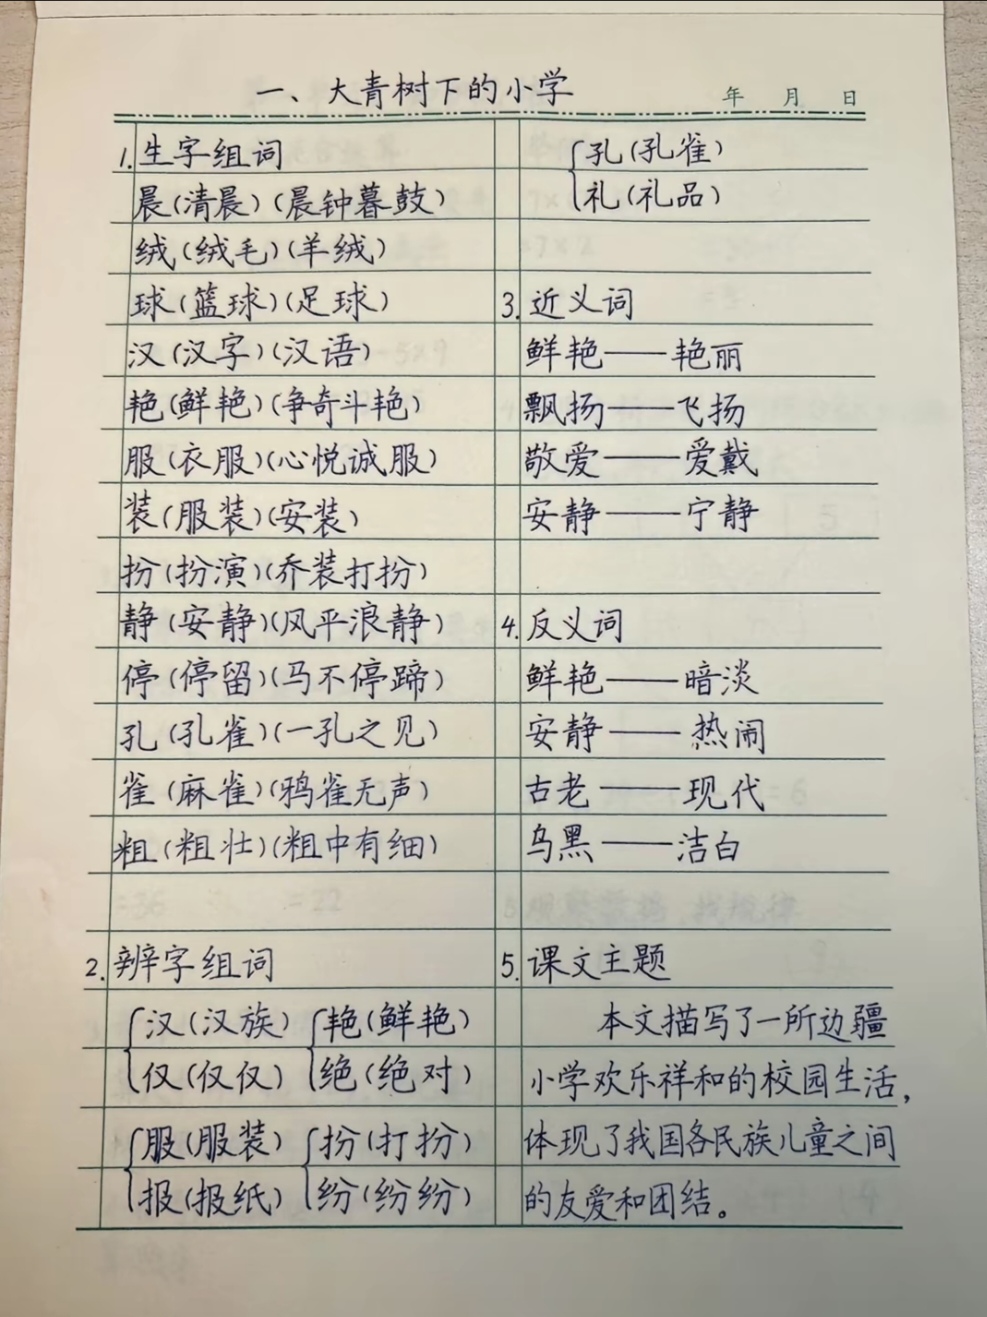 一、大青树下的小学
年 月 日
1. 生字组词
晨(清晨)(晨钟暮鼓)
绒(绒毛)(羊绒)
球(篮球)(足球)
汉(汉字)(汉语)
艳(鲜艳)(争奇斗艳)
服(衣服)(心悦诚服)
装(服装)(安装)
扮(扮演)(乔装打扮)
静(安静)(风平浪静)
停(停留)(马不停蹄)
孔(孔雀)(一孔之见)
雀(麻雀)(鸦雀无声)
粗(粗壮)(粗中有细)
2. 辨字组词
汉(汉族) 艳(鲜艳)
仅(仅仅) 绝(绝对)
服(服装) 扮(打扮)
报(报纸) 纷(纷纷)
孔(孔雀)
礼(礼品)
3. 近义词
鲜艳——艳丽
飘扬——飞扬
敬爱——爱戴
安静——宁静
4. 反义词
鲜艳——暗淡
安静——热闹
古老——现代
乌黑——洁白
5. 课文主题
本文描写了一所边疆
小学欢乐祥和的校园生活,
体现了我国各民族儿童之间
的友爱和团结。